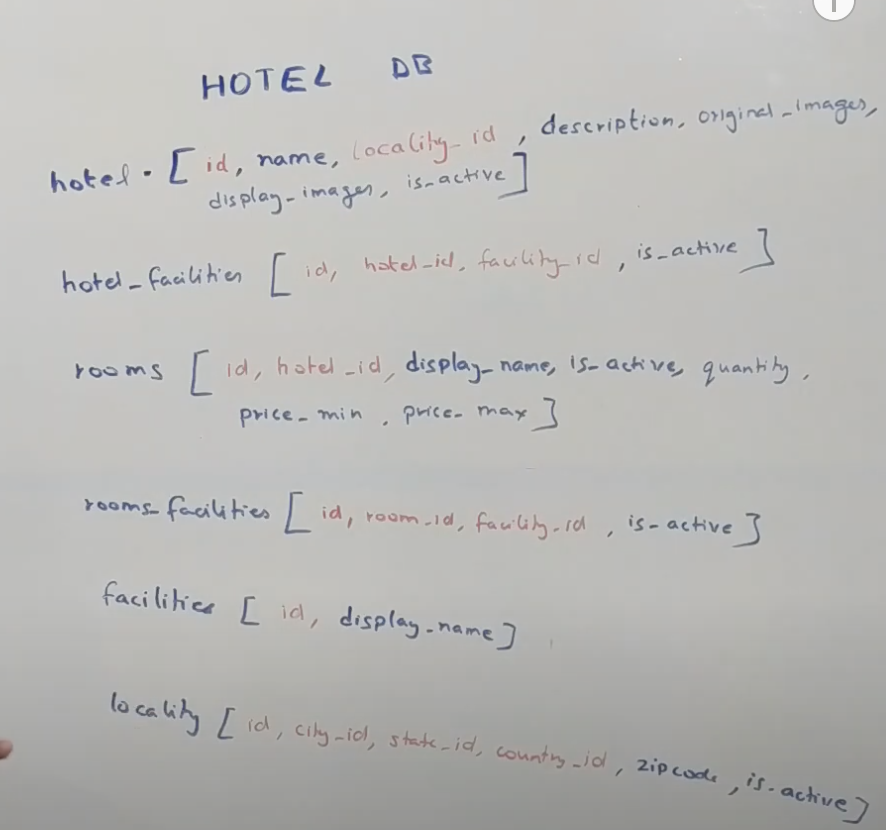 HOTEL DB
hotel · [ id, name, locality_id , description, original_images,
display_images, is_active ]
hotel_facilities [ id, hotel_id, facility_id , is_active ]
rooms [ id, hotel_id, display_name, is_active, quantity ,
price_min , price_max ]
rooms_facilities [ id, room_id, facility_id , is_active ]
facilities [ id, display_name ]
locality [ id, city_id, state_id, country_id , zipcode , is_active ]